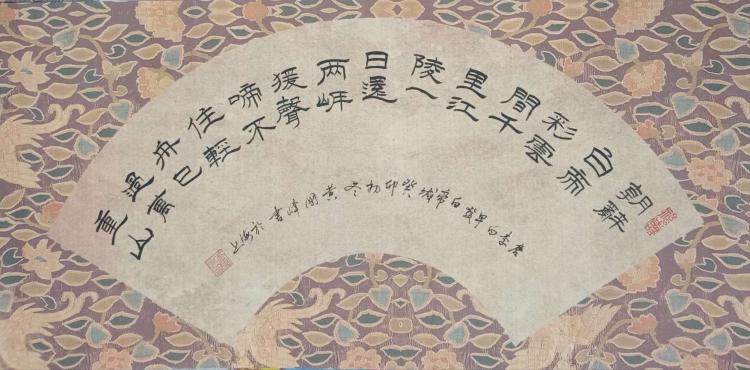 朝辭
白帝
彩雲
間千
里江
陵一
日還
两岸
猨聲
啼不
住輕
舟已
過萬
重山
唐李白早發白帝城癸卯初冬黄國峰書於上海